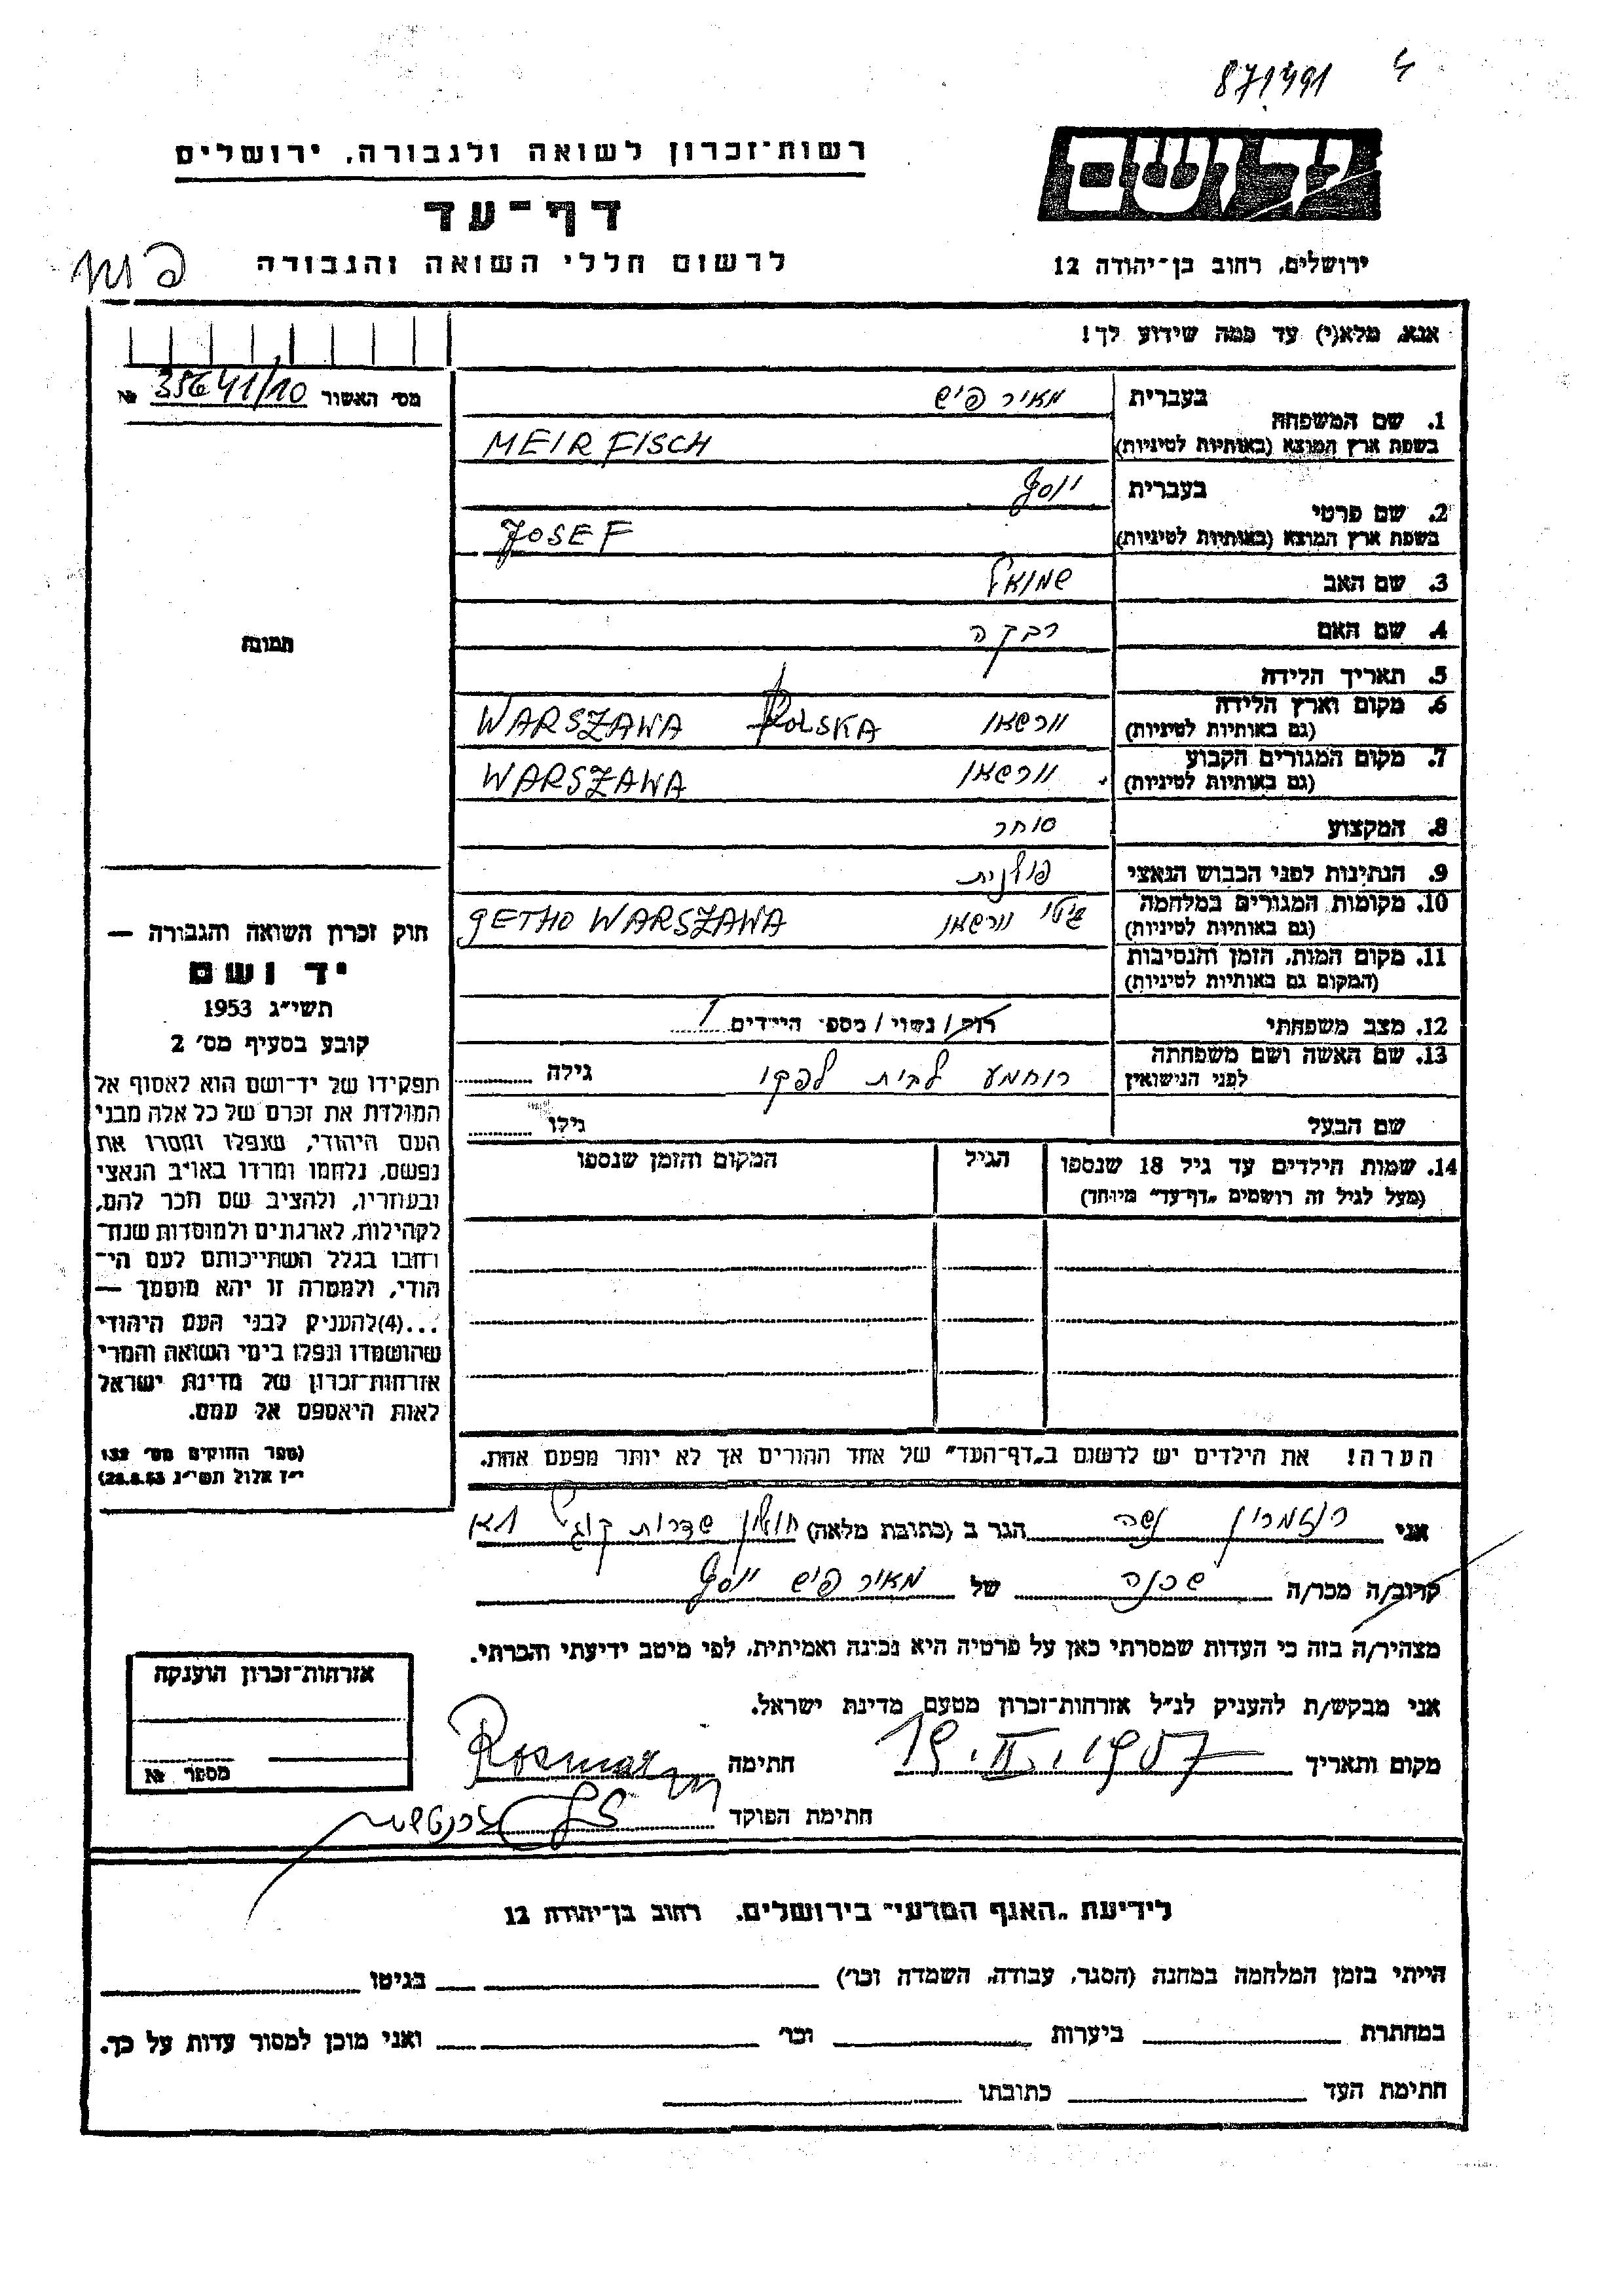 871491
רשות־זכרון לשואה ולגבורה, ירושלים
יד ושם
דף־עד
לרשום חללי השואה והגבורה
ירושלים, רחוב בן־יהודה 12
אנא, מלא(י) עד כמה שידוע לך!
מס׳ האשור 35641/10 №
1. שם המשפחה
בעברית מאיר פיש
בשפת ארץ המוצא (באותיות לטיניות) MEIR FISCH
2. שם פרטי
בעברית יוסף
בשפת ארץ המוצא (באותיות לטיניות) JOSEF
3. שם האב שמואל
4. שם האם רבקה
5. תאריך הלידה
6. מקום וארץ הלידה
(גם באותיות לטיניות) וורשאו WARSZAWA POLSKA
7. מקום המגורים הקבוע
(גם באותיות לטיניות) וורשאו WARSZAWA
8. המקצוע סוחר
9. הנתינות לפני הכבוש הנאצי פולנית
10. מקומות המגורים במלחמה
(גם באותיות לטיניות) גיטו וורשאו GETHO WARSZAWA
11. מקום המות, הזמן והנסיבות
(המקום גם באותיות לטיניות)
12. מצב משפחתי רוק/ נשוי/ מספר הילדים 1
13. שם האשה ושם משפחתה
לפני הנישואין רוחמע לבית לפקו גילה
שם הבעל גילו
14. שמות הילדים עד גיל 18 שנספו הגיל המקום והזמן שנספו
(מעל לגיל זה רושמים „דף־עד” מיוחד)
הערה! את הילדים יש לרשום ב„דף־העד” של אחד ההורים אך לא יותר מפעם אחת.
תמונה
חוק זכרון השואה והגבורה —
יד ושם
תשי״ג 1953
קובע בסעיף מס׳ 2
תפקידו של יד־ושם הוא לאסוף אל
המולדת את זכרם של כל אלה מבני
העם היהודי, שנפלו ומסרו את
נפשם, נלחמו ומרדו באויב הנאצי
ובעוזריו, ולהציב שם וזכר להם,
לקהילות, לארגונים ולמוסדות שנח־
רחבו בגלל השתייכותם לעם הי־
הודי, ולמטרה זו יהא מוסמך —
...(4)להעניק לבני העם היהודי
שהושמדו ונפלו בימי השואה והמרי
אזרחות־זכרון של מדינת ישראל
לאות היאספם אל עמם.
(ספר החוקים מס׳ 132
י״ז אלול תשי״ג 28.8.53)
אני רוזמרין הגר ב (כתובת מלאה) חולון שדרות קוגל
קרוב/ה מכר/ה שכנה של מאיר פיש יוסף
מצהיר/ה בזה כי העדות שמסרתי כאן על פרטיה היא נכונה ואמיתית, לפי מיטב ידיעתי והכרתי.
אני מבקש/ת להעניק לנ״ל אזרחות־זכרון מטעם מדינת ישראל.
מקום ותאריך 19.II.1957 חתימה Rosmaryn
חתימת הפוקד
אזרחות־זכרון הוענקה
מספר №
לידיעת „האגף המדעי” בירושלים, רחוב בן־יהודה 12
הייתי בזמן המלחמה במחנה (הסגר, עבודה, השמדה וכר׳) בגיטו
במחתרת ביערות וכר׳ ואני מוכן למסור עדות על כך.
חתימת העד כתובתו